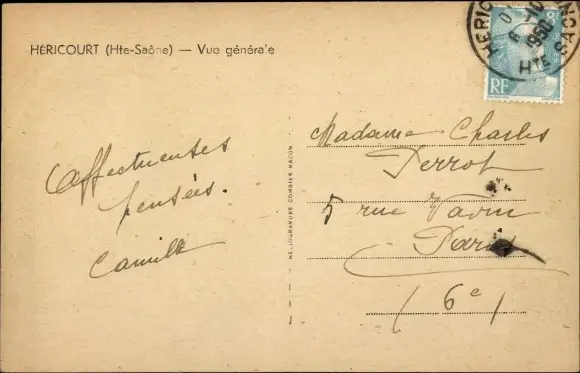 HÉRICOURT (Hte-Saône) — Vue générale
Affectueuses
pensées.
Camille
HÉLIOGRAVURE COMBIER MACON
HÉRICOURT
6-10
1950
HTE SAÔNE
8F
RF
Madame Charles
Perrot
5 rue Vavin
Paris
(6e)